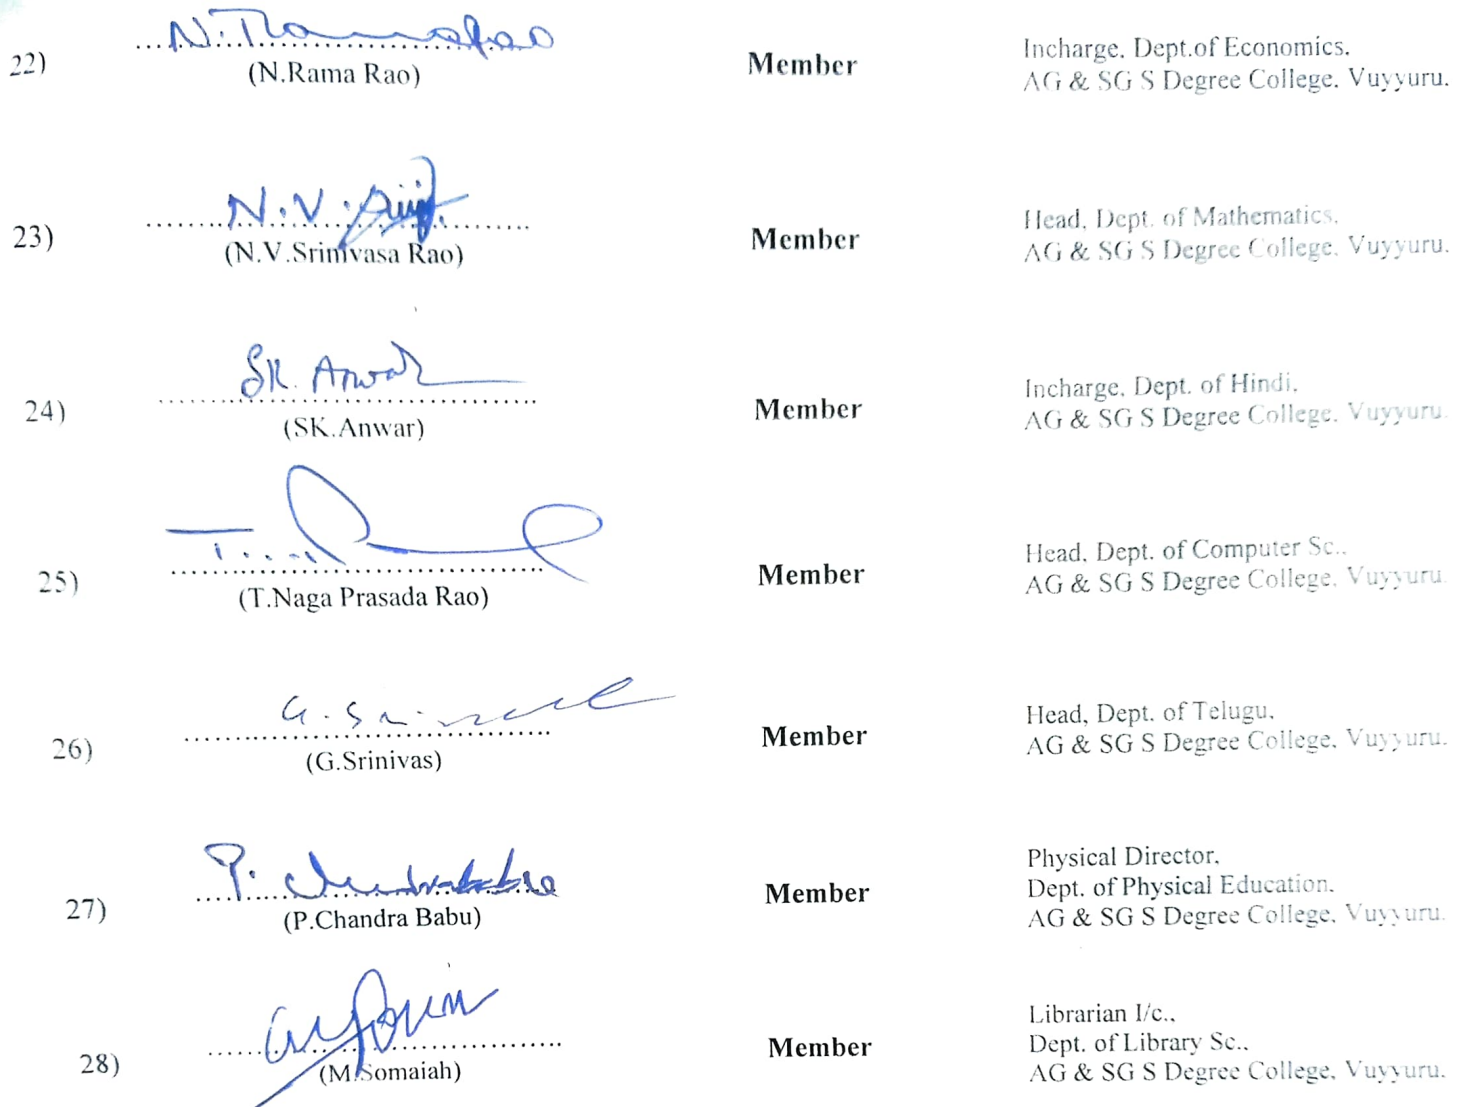 N. Ramarao
22) (N.Rama Rao) Member Incharge, Dept.of Economics,
AG & SG S Degree College, Vuyyuru.
N.V.
23) (N.V.Srinivasa Rao) Member Head, Dept. of Mathematics,
AG & SG S Degree College, Vuyyuru.
SK. Anwar
24) (SK.Anwar) Member Incharge, Dept. of Hindi,
AG & SG S Degree College, Vuyyuru.
25) (T.Naga Prasada Rao) Member Head, Dept. of Computer Sc.,
AG & SG S Degree College, Vuyyuru.
G. Srinivas
26) (G.Srinivas) Member Head, Dept. of Telugu,
AG & SG S Degree College, Vuyyuru.
P. Chandrababu
27) (P.Chandra Babu) Member Physical Director,
Dept. of Physical Education,
AG & SG S Degree College, Vuyyuru.
28) (M.Somaiah) Member Librarian I/c.,
Dept. of Library Sc.,
AG & SG S Degree College, Vuyyuru.